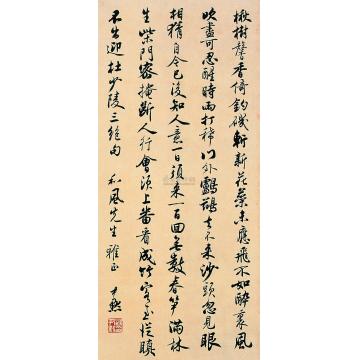 楸树馨香倚钓矶斩新花蕊未应飞不如醉里风
吹尽可忍醒时雨打稀门外鸬鹚去不来沙头忽见眼
相猜自今已后知人意一日须来一百回无数春笋满林
生柴门密掩断人行会须上番看成竹客至从瞋
不出迎杜少陵三绝句 和风先生雅正 尹默